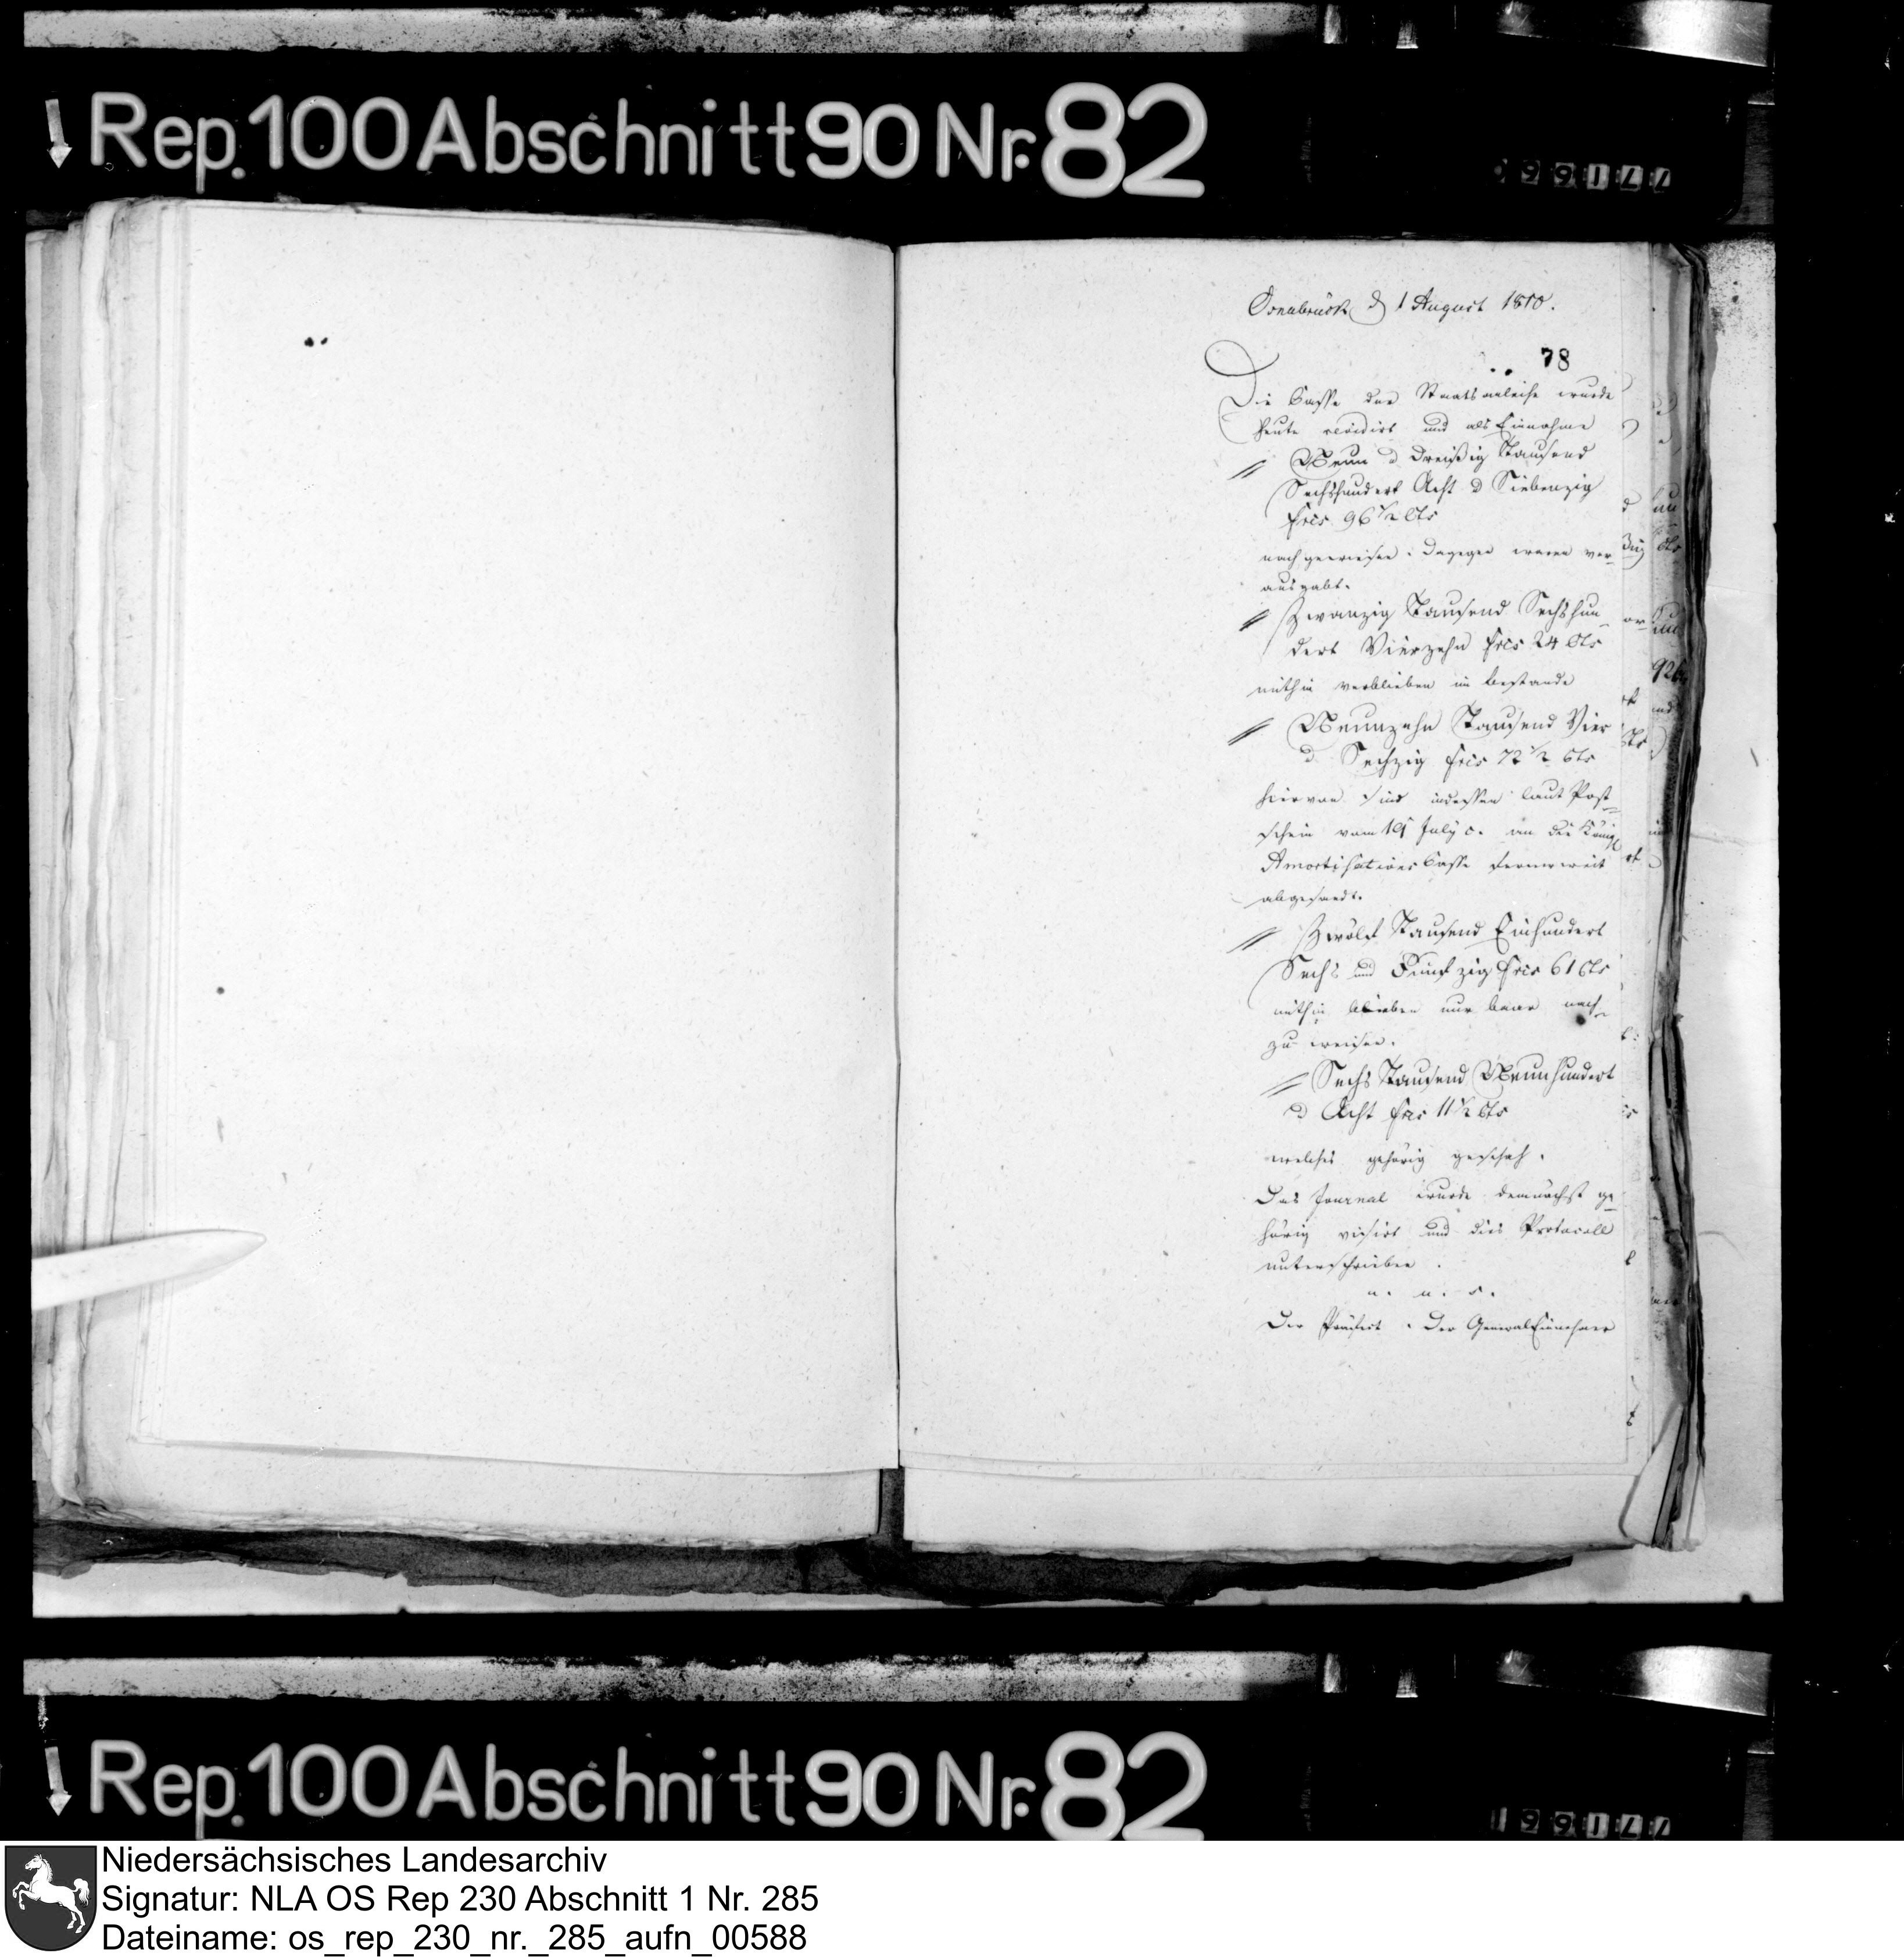 Rep. 100 Abschnitt 90 Nr. 82
Osnabrück d 1 August 1810.
78
Die Casse der Staatsanleihe wurde
heute revidirt und als Einnahme
// Neun d Dreißig Tausend
Sechshundert Acht d Siebenzig
frcs 96 1/2 Cts
nachgewiesen. Dagegen waren ver-
ausgabt.
// Zwanzig Tausend Sechshun-
dert Vierzehn frcs 24 Cts
mithin verblieben in bestande
// Neunzehn Tausend Vier
d Sechzig frcs 72 1/2 Cts
hiervon sind indessen laut Post-
schein vom 19 July c. an die Königl
Amortisations Casse
abgesandt.
// Zwölf Tausend Einhundert
Sechs und Fünfzig frcs 61 Cts
mithin blieben nur baar nach-
zu weisen.
// Sechs Tausend Neunhundert
d Acht frcs 11 1/2 Cts
welches gehörig geschah.
Das Journal wurde demnächst ge-
hörig visirt und dies Protocoll
unterschrieben.
u. u. s.
Der Präfect. Der GeneralEinnehmer
Rep. 100 Abschnitt 90 Nr. 82
Niedersächsisches Landesarchiv
Signatur: NLA OS Rep 230 Abschnitt 1 Nr. 285
Dateiname: os_rep_230_nr._285_aufn_00588